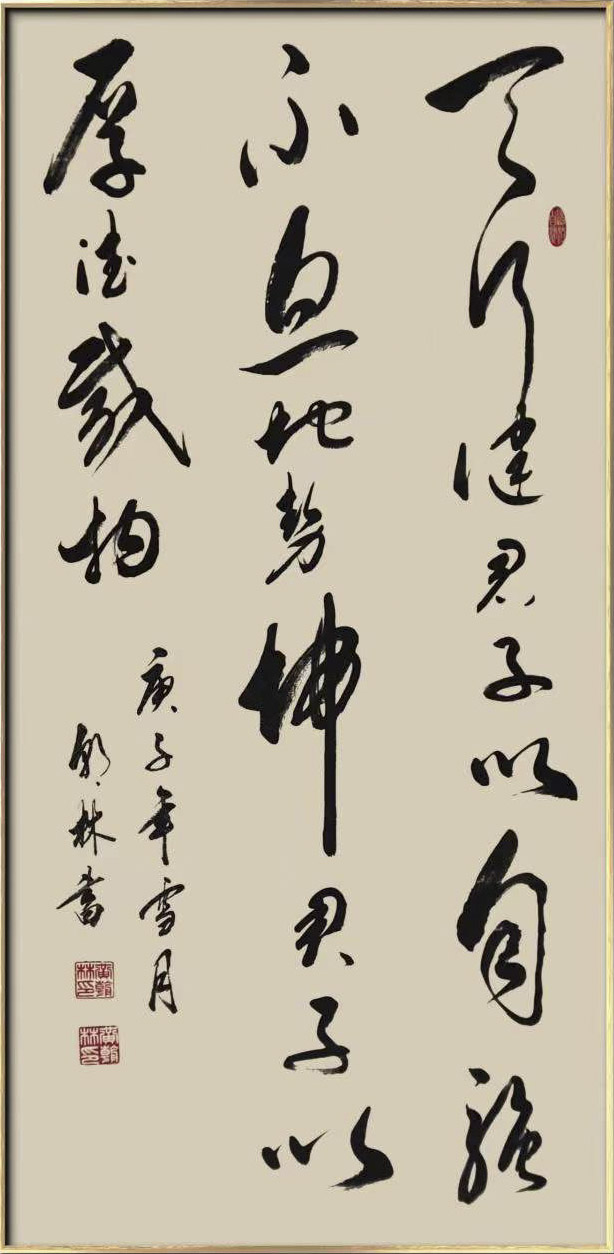 天行健君子以自強
不息地勢坤君子以
厚德載物
庚子年雪月
翰林書
黄翰林印
黄翰林印